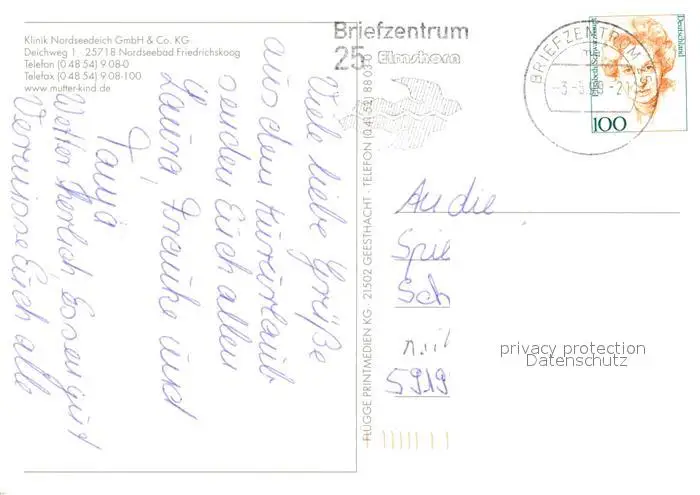 Klinik Nordseedeich GmbH & Co. KG
Deichweg 1 · 25718 Nordseebad Friedrichskoog
Telefon (0 48 54) 9 08-0
Telefax (0 48 54) 9 08-100
www.mutter-kind.de
Viele liebe Grüße
aus dem Kururlaub
senden Euch allen
Laura, Frauke und
Tanja
Wetter herrlich Essen gut
Vermisse Euch alle
FLÜGGE PRINTMEDIEN KG · 21502 GEESTHACHT · TELEFON (04152) 88030
Briefzentrum
25 Elmshorn
BRIEFZENTRUM 25
100
Deutschland
An die
Spie
Sch
5919
privacy protection
Datenschutz